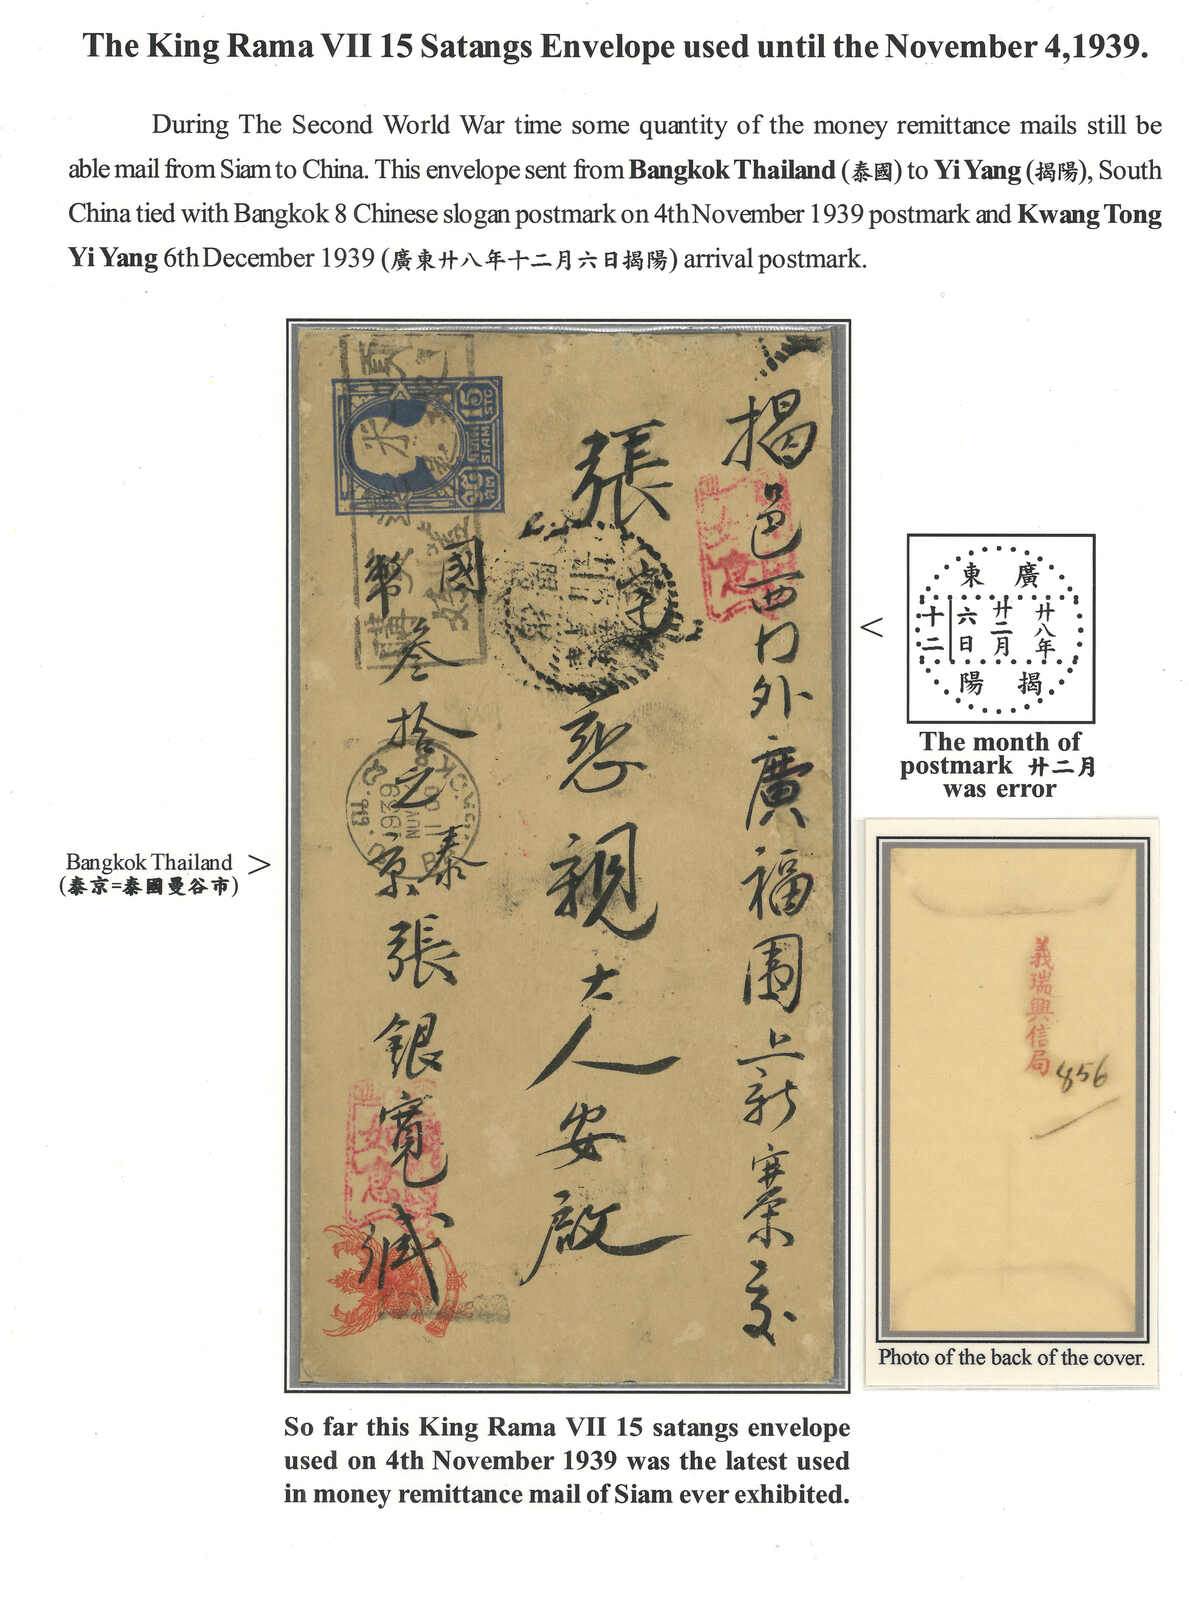 The King Rama VII 15 Satangs Envelope used until the November 4,1939.
During The Second World War time some quantity of the money remittance mails still be
able mail from Siam to China. This envelope sent from Bangkok Thailand (泰國) to Yi Yang (揭陽), South
China tied with Bangkok 8 Chinese slogan postmark on 4th November 1939 postmark and Kwang Tong
Yi Yang 6th December 1939 (廣東廿八年十二月六日揭陽) arrival postmark.
揭邑西門外廣福圍上新寨交
張宅
慈親大人安啟
國幣叁拾之
泰京張銀寬緘
15
STG
SIAM
如意
如意
廣東
廿八年
廿二月
六日
十二
揭陽
<
The month of
postmark 廿二月
was error
Bangkok Thailand >
(泰京=泰國曼谷市)
義瑞興信局
856
Photo of the back of the cover.
So far this King Rama VII 15 satangs envelope
used on 4th November 1939 was the latest used
in money remittance mail of Siam ever exhibited.